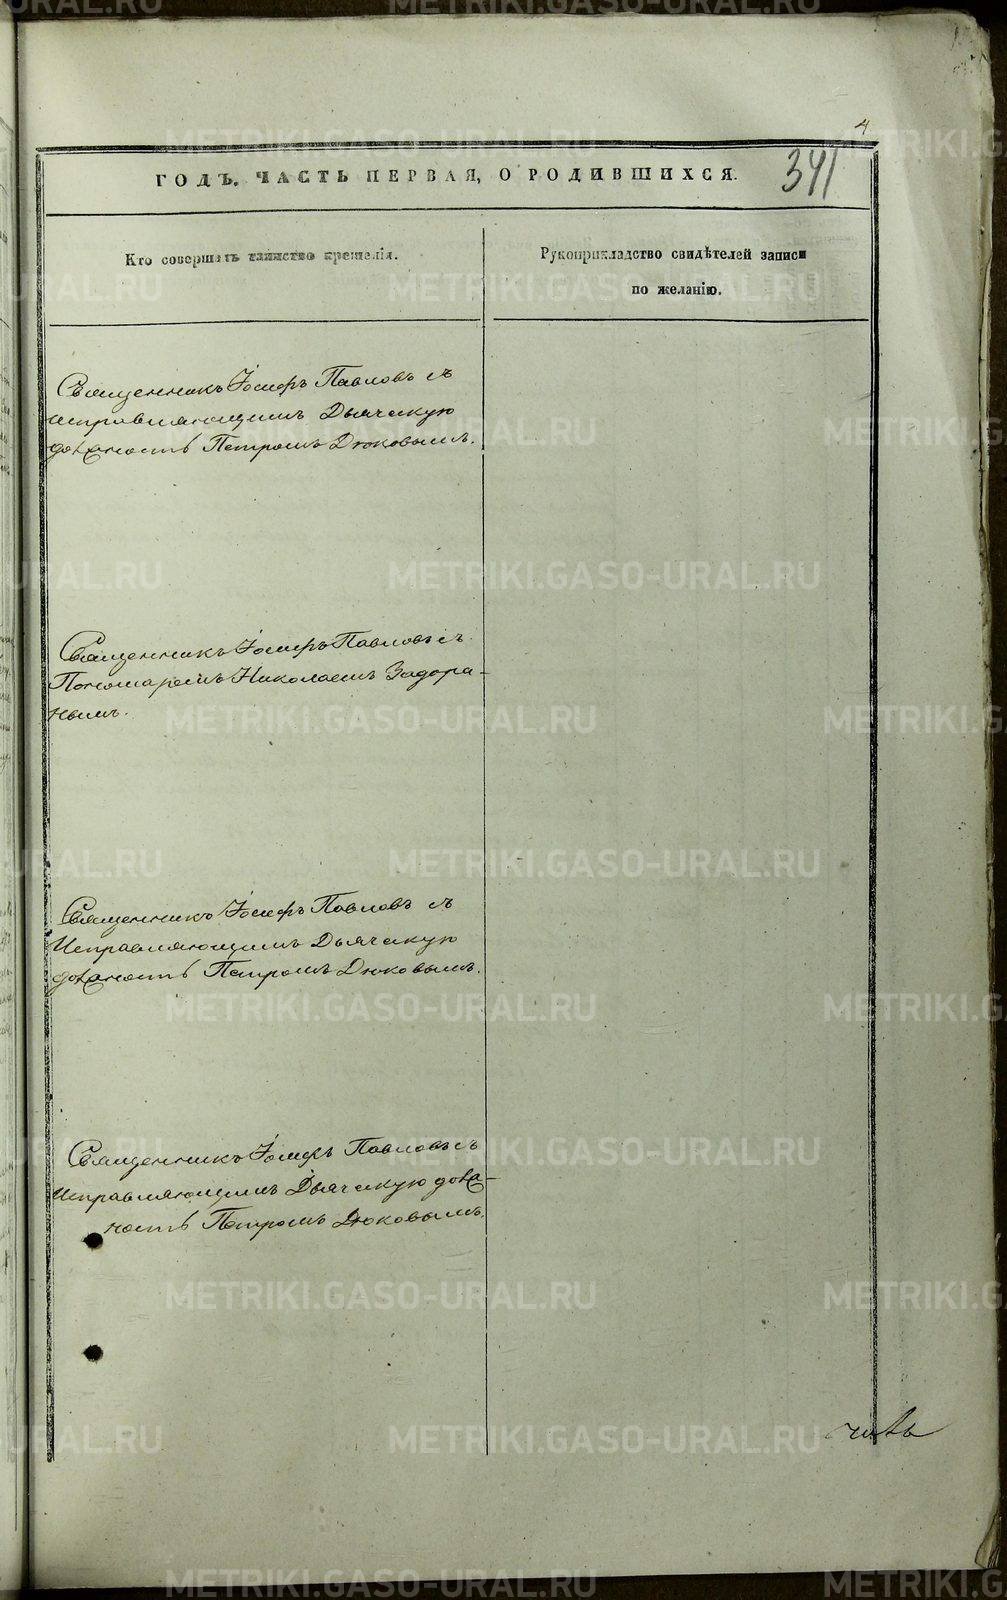 4
341
ГОДЪ. ЧАСТЬ ПЕРВАЯ, О РОДИВШИХСЯ.
Кто совершалъ таинство крещенія.
Рукоприкладство свидѣтелей записи
по желанію.
Священникъ Іосифъ Павловъ съ
исправляющимъ Дьячскую
должность Петромъ Дюковымъ.
Священникъ Іосифъ Павловъ съ
Пономаремъ Николаемъ Задора-
нымъ.
Священникъ Іосифъ Павловъ съ
Исправляющимъ Дьячскую
должность Петромъ Дюковымъ.
Священникъ Іосифъ Павловъ съ
Исправляющимъ Дьячскую долж-
ность Петромъ Дюковымъ.
METRIKI.GASO-URAL.RU